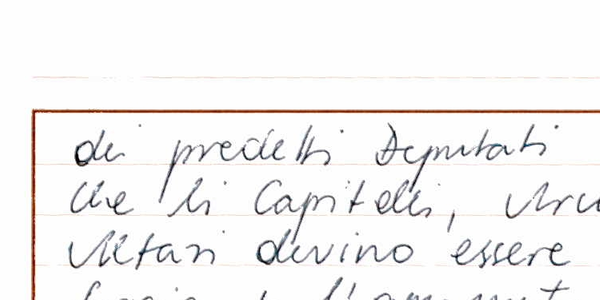 dei predetti Deputati
che li Capitelli,
Altari divino essere